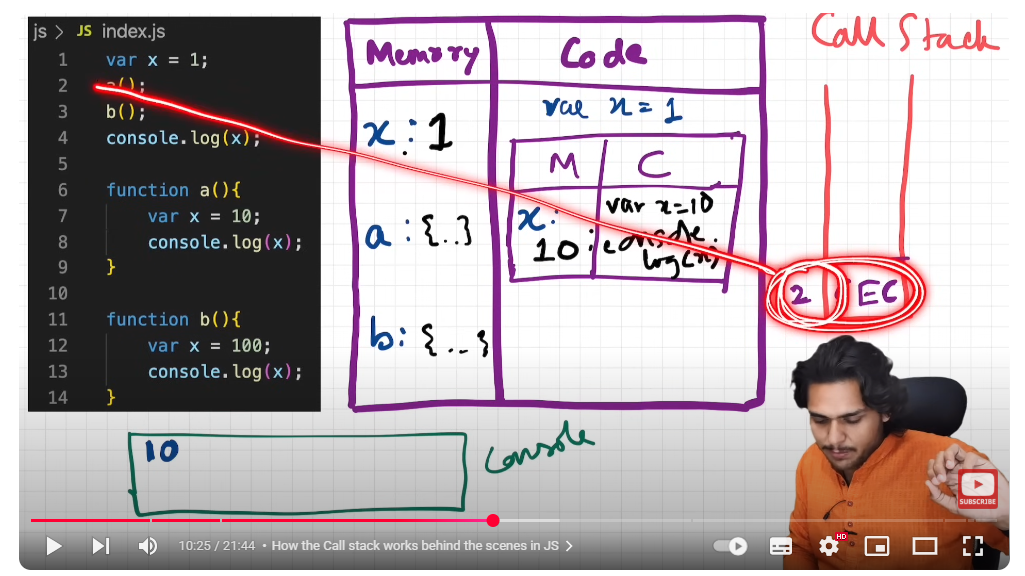 js > JS index.js
1 var x = 1;
2 a();
3 b();
4 console.log(x);
5
6 function a(){
7 var x = 10;
8 console.log(x);
9 }
10
11 function b(){
12 var x = 100;
13 console.log(x);
14 }
Memory
Code
x : 1
a : {..}
b : {...}
var x = 1
M
C
x :
10
var x=10
console.
log(x);
Call Stack
2
EC
10
Console
SUBSCRIBE
10:25 / 21:44 • How the Call stack works behind the scenes in JS >
HD